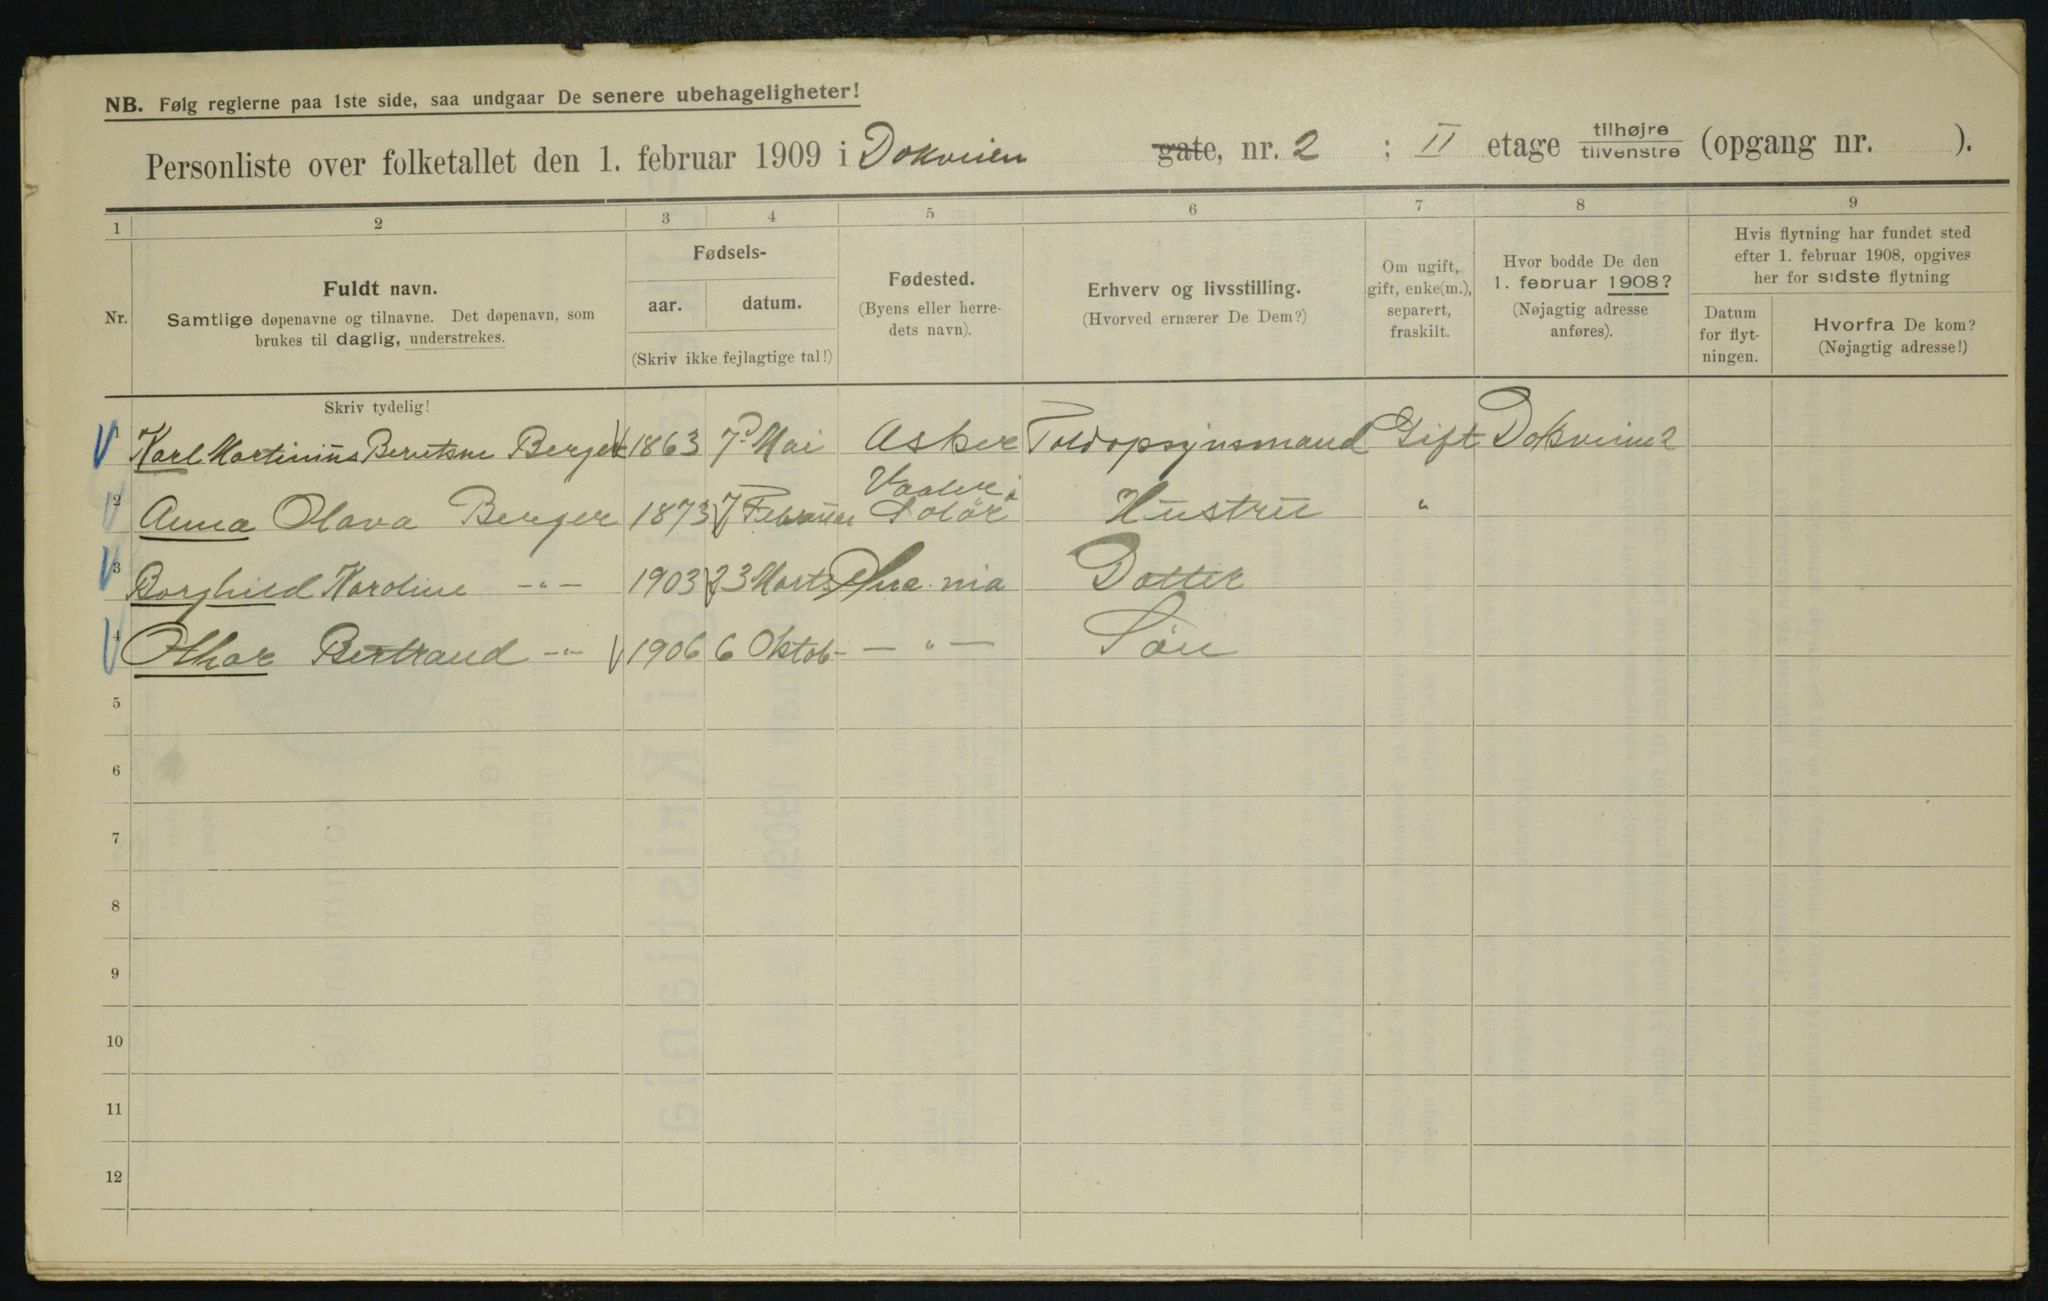 NB. Følg reglerne paa 1ste side, saa undgaar De senere ubehageligheter!
Personliste over folketallet den 1. februar 1909 i Dokveien gate, nr. 2 ; II etage tilhøjre tilvenstre (opgang nr. ).
1 2 3 4 5 6 7 8 9
Nr.
Fuldt navn.
Samtlige døpenavne og tilnavne. Det døpenavn, som
brukes til daglig, understrekes.
Fødsels-
aar. datum.
(Skriv ikke fejlagtige tal!)
Fødested.
(Byens eller herre-
dets navn).
Erhverv og livsstilling.
(Hvorved ernærer De Dem?)
Om ugift,
gift, enke(m.),
separert,
fraskilt.
Hvor bodde De den
1. februar 1908?
(Nøjagtig adresse
anføres).
Hvis flytning har fundet sted
efter 1. februar 1908, opgives
her for sidste flytning
Datum
for flyt-
ningen.
Hvorfra De kom?
(Nøjagtig adresse!)
Skriv tydelig!
Karl Martinius Berntsen Berger 1863 7d Mai Asker Toldopsynsmand Gift Dokveien 2
2 Anna Olava Berger 1873 7 Februar Vaaler i Solør Hustru "
3 Borghild Karoline -"- 1903 23 Marts Kra.nia Datter
4 Othar Bertrand -"- 1906 6 Oktob - -"- Søn
5
6
7
8
9
10
11
12